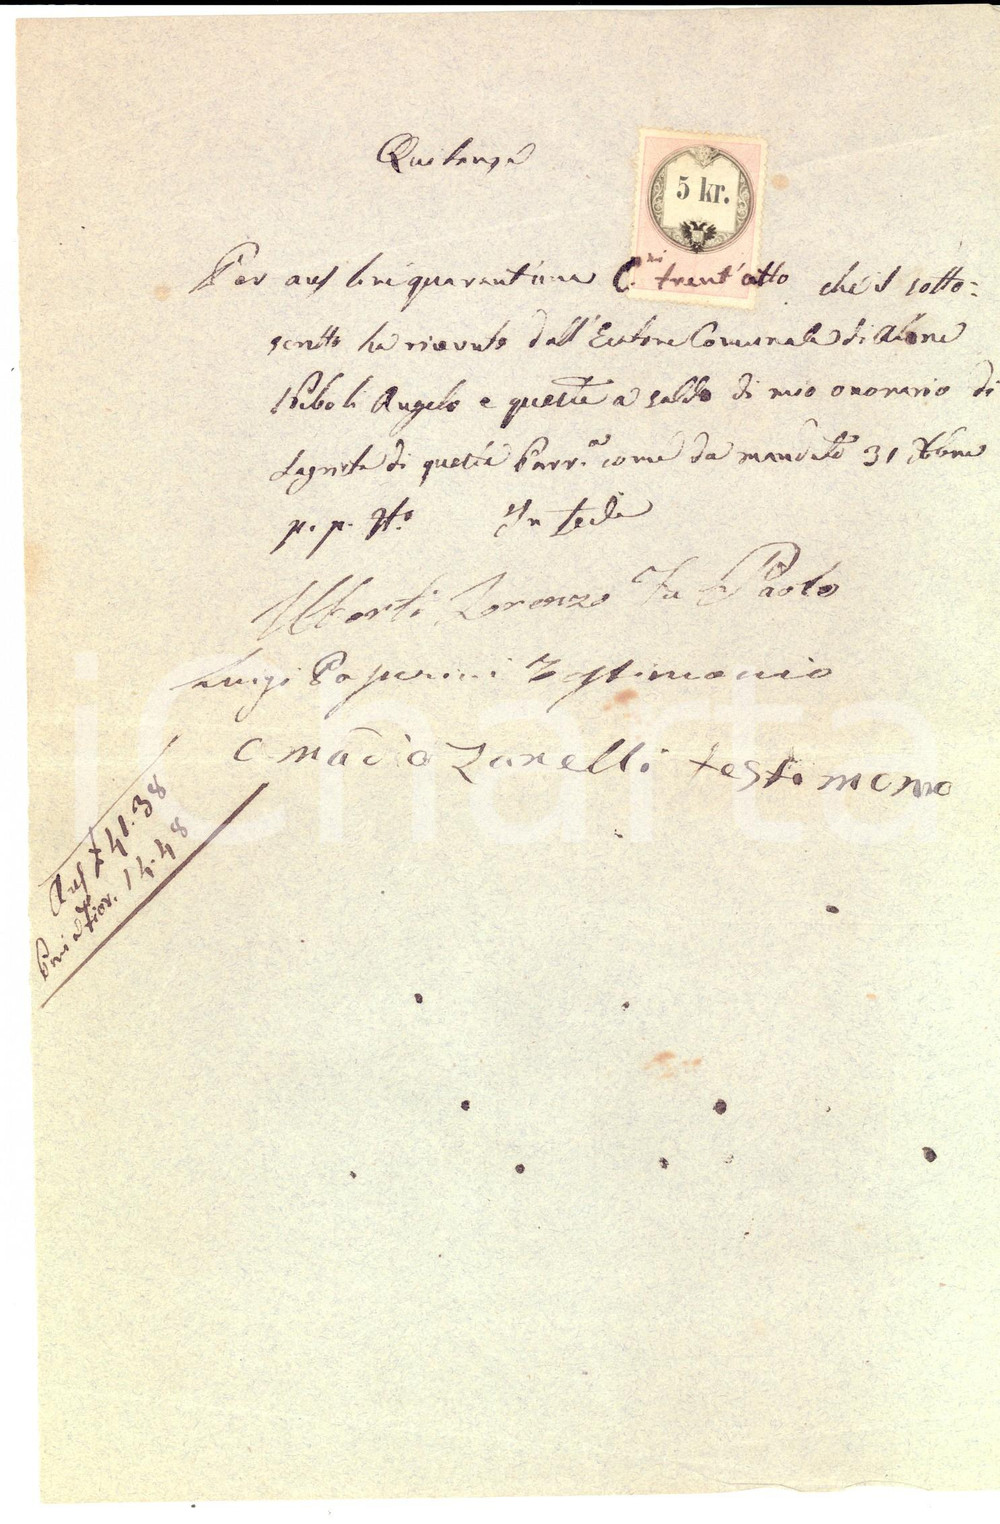 Quitanza
5 kr.
Per aus lire quarantuna C.mi trent'otto che il sotto=
scritto ha ricevuto dall'Esatore Comunale di Alone
Piboli Angelo e queste a saldo di mio onorario di
Sagrista di questa Parr.a come da mandato 31 Xbre
p. p. In fede
Uberti Lorenzo Fu Paolo
Luigi Paperini Testimonio
Amadio Zanelli testimonio
Aus £ 41.38
Pari a Fior. 14.48